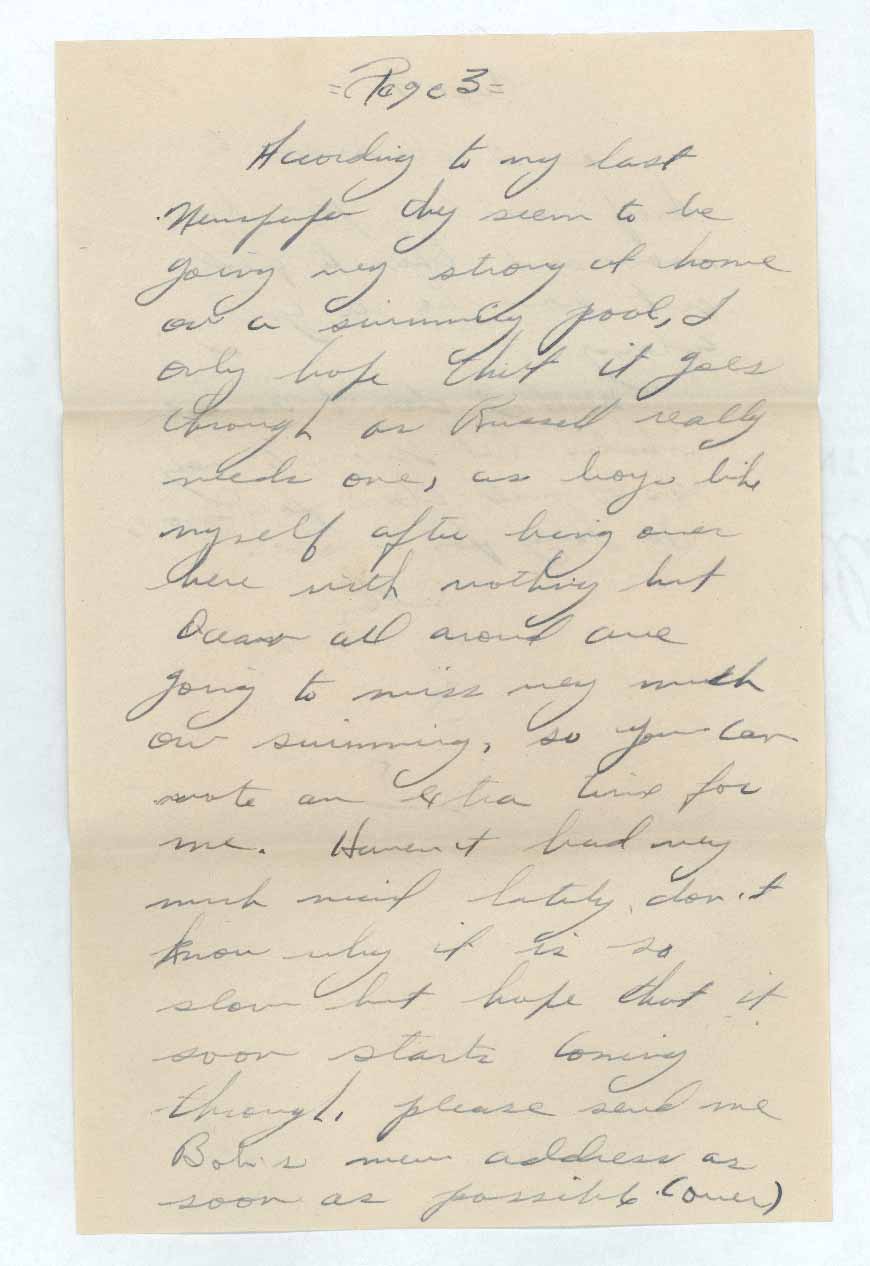 =Page 3=
According to my last
Newspaper they seem to be
going very strong at home
on a swimming pool, I
only hope that it goes
through as Russell really
needs one, as boys like
myself after being over
here with nothing but
Ocean all around are
going to miss very much
our swimming, so you can
vote an extra time for
me. Haven't had very
much mail lately, don't
know why it is so
slow but hope that it
soon starts coming
through, please send me
Bob's new address as
soon as possible (over)